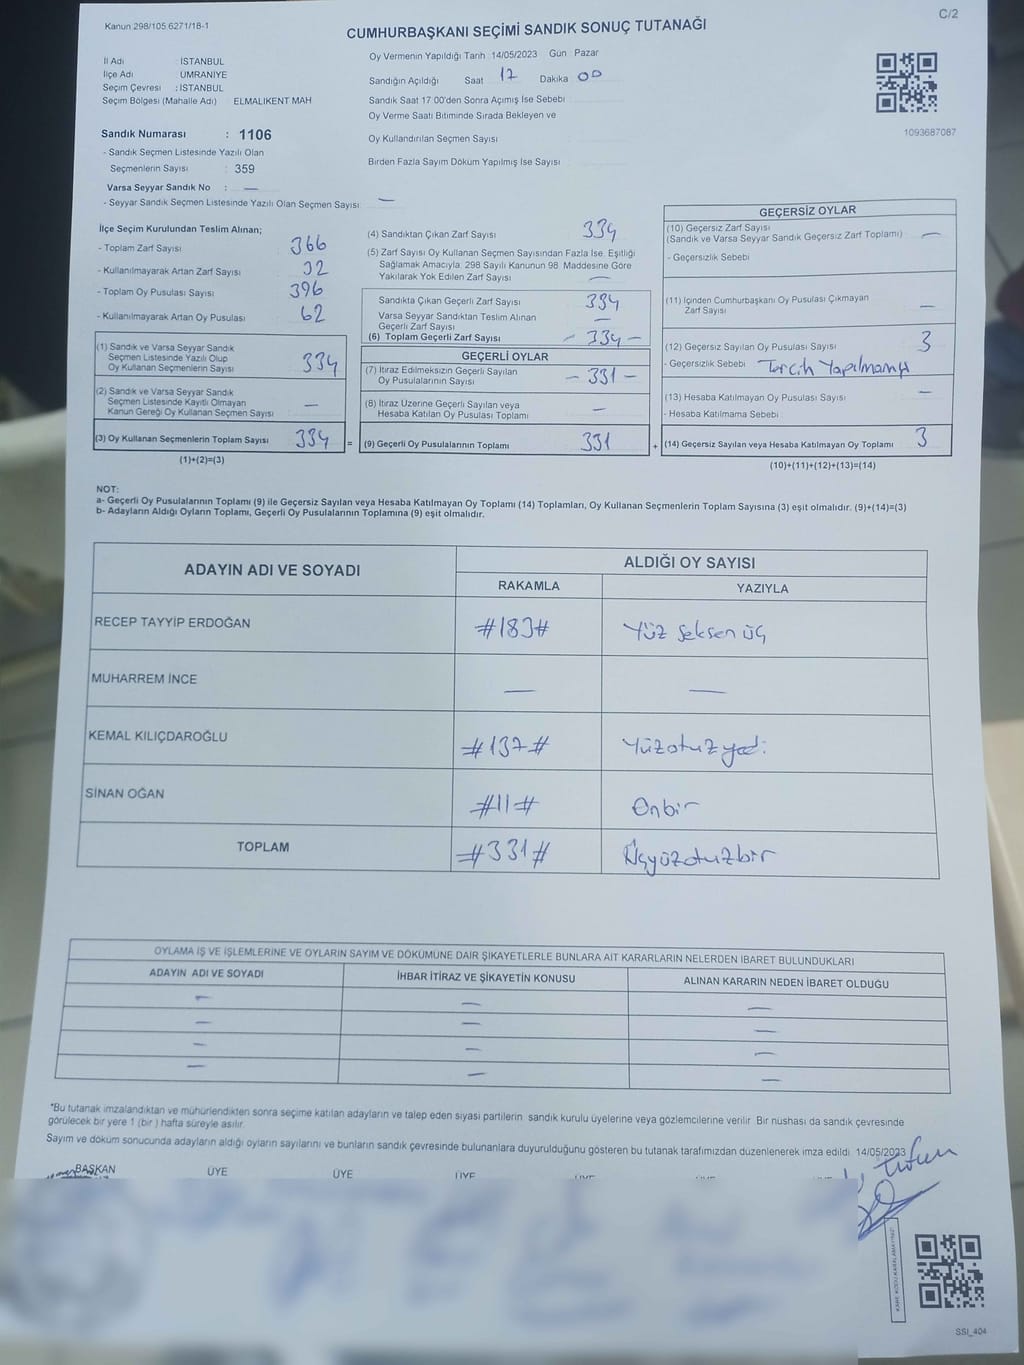 Kanun 298/105 6271/18-1
C/2
CUMHURBAŞKANI SEÇİMİ SANDIK SONUÇ TUTANAĞI
İl Adı : İSTANBUL
İlçe Adı : ÜMRANİYE
Seçim Çevresi : İSTANBUL
Seçim Bölgesi (Mahalle Adı) ELMALIKENT MAH
Sandık Numarası : 1106
- Sandık Seçmen Listesinde Yazılı Olan
Seçmenlerin Sayısı : 359
Varsa Seyyar Sandık No : —
- Seyyar Sandık Seçmen Listesinde Yazılı Olan Seçmen Sayısı: —
Oy Vermenin Yapıldığı Tarih : 14/05/2023 Gün : Pazar
Sandığın Açıldığı Saat 17 Dakika 00
Sandık Saat 17 00'den Sonra Açımış İse Sebebi :
Oy Verme Saati Bitiminde Sırada Bekleyen ve
Oy Kullandırılan Seçmen Sayısı
Birden Fazla Sayım Döküm Yapılmış İse Sayısı
1093687087
İlçe Seçim Kurulundan Teslim Alınan;
- Toplam Zarf Sayısı 366
- Kullanılmayarak Artan Zarf Sayısı 32
- Toplam Oy Pusulası Sayısı 396
- Kullanılmayarak Artan Oy Pusulası 62
(1) Sandık ve Varsa Seyyar Sandık
Seçmen Listesinde Yazılı Olup
Oy Kullanan Seçmenlerin Sayısı 334
(2) Sandık ve Varsa Seyyar Sandık
Seçmen Listesinde Kayıtlı Olmayan
Kanun Gereği Oy Kullanan Seçmen Sayısı —
(3) Oy Kullanan Seçmenlerin Toplam Sayısı 334 =
(1)+(2)=(3)
(4) Sandıktan Çıkan Zarf Sayısı 334
(5) Zarf Sayısı Oy Kullanan Seçmen Sayısından Fazla İse, Eşitliği
Sağlamak Amacıyla, 298 Sayılı Kanunun 98. Maddesine Göre
Yakılarak Yok Edilen Zarf Sayısı —
Sandıkta Çıkan Geçerli Zarf Sayısı 334
Varsa Seyyar Sandıktan Teslim Alınan
Geçerli Zarf Sayısı —
(6) Toplam Geçerli Zarf Sayısı — 334 —
GEÇERLİ OYLAR
(7) İtiraz Edilmeksizin Geçerli Sayılan
Oy Pusulalarının Sayısı — 331 —
(8) İtiraz Üzerine Geçerli Sayılan veya
Hesaba Katılan Oy Pusulası Toplamı —
(9) Geçerli Oy Pusulalarının Toplamı 331 +
GEÇERSİZ OYLAR
(10) Geçersiz Zarf Sayısı
(Sandık ve Varsa Seyyar Sandık Geçersiz Zarf Toplamı) —
- Geçersizlik Sebebi
(11) İçinden Cumhurbaşkanı Oy Pusulası Çıkmayan
Zarf Sayısı —
(12) Geçersiz Sayılan Oy Pusulası Sayısı 3
- Geçersizlik Sebebi Tercih Yapılmamış
(13) Hesaba Katılmayan Oy Pusulası Sayısı —
- Hesaba Katılmama Sebebi
(14) Geçersiz Sayılan veya Hesaba Katılmayan Oy Toplamı 3
(10)+(11)+(12)+(13)=(14)
NOT:
a- Geçerli Oy Pusulalarının Toplamı (9) ile Geçersiz Sayılan veya Hesaba Katılmayan Oy Toplamı (14) Toplamları, Oy Kullanan Seçmenlerin Toplam Sayısına (3) eşit olmalıdır. (9)+(14)=(3)
b- Adayların Aldığı Oyların Toplamı, Geçerli Oy Pusulalarının Toplamına (9) eşit olmalıdır.
ADAYIN ADI VE SOYADI
ALDIĞI OY SAYISI
RAKAMLA YAZIYLA
RECEP TAYYİP ERDOĞAN #183# Yüz Seksen üç
MUHARREM İNCE — —
KEMAL KILIÇDAROĞLU #137# Yüzotuzyedi
SİNAN OĞAN #11# Onbir
TOPLAM #331# Üçyüzotuzbir
OYLAMA İŞ VE İŞLEMLERİNE VE OYLARIN SAYIM VE DÖKÜMÜNE DAİR ŞİKAYETLERLE BUNLARA AİT KARARLARIN NELERDEN İBARET BULUNDUKLARI
ADAYIN ADI VE SOYADI İHBAR İTİRAZ VE ŞİKAYETİN KONUSU ALINAN KARARIN NEDEN İBARET OLDUĞU
— — —
— — —
— — —
— — —
*Bu tutanak imzalandıktan ve mühürlendikten sonra seçime katılan adayların ve talep eden siyasi partilerin sandık kurulu üyelerine veya gözlemcilerine verilir. Bir nüshası da sandık çevresinde
görülecek bir yere 1 (bir) hafta süreyle asılır.
Sayım ve döküm sonucunda adayların aldığı oyların sayılarını ve bunların sandık çevresinde bulunanlara duyurulduğunu gösteren bu tutanak tarafımızdan düzenlenerek imza edildi. 14/05/2023
BAŞKAN ÜYE ÜYE ÜYE
KARE KODU KARALAMAYINIZ!
SSI_404